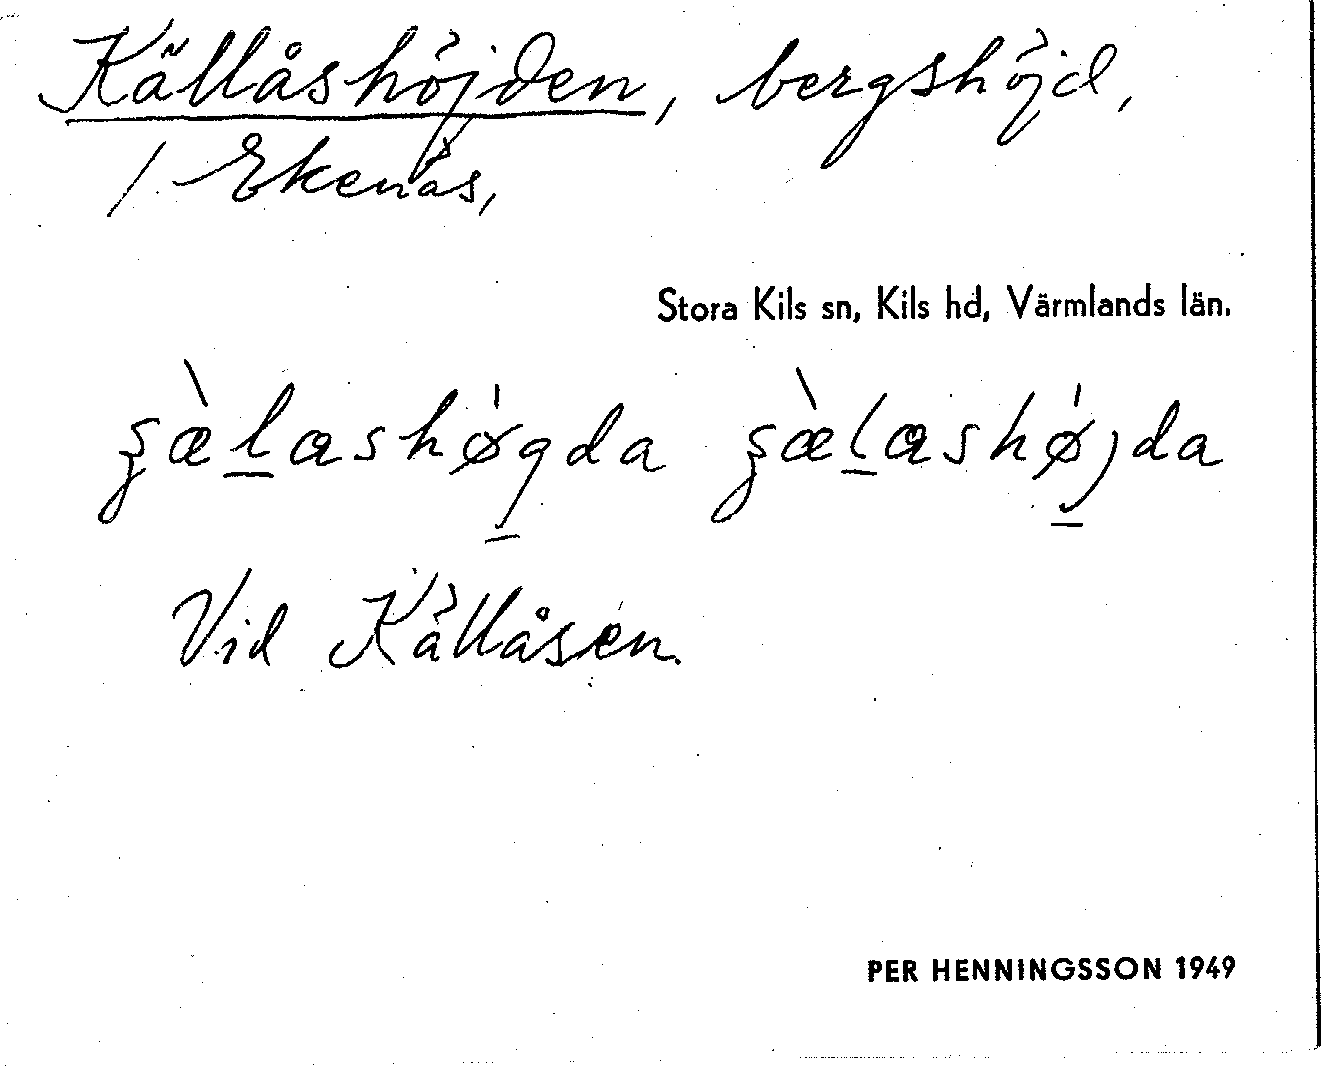 Källåshöjden, bergshöjd,
/ Ekenäs,
Stora Kils sn, Kils hd, Värmlands län.
Vid Källåsen.
PER HENNINGSSON 1949